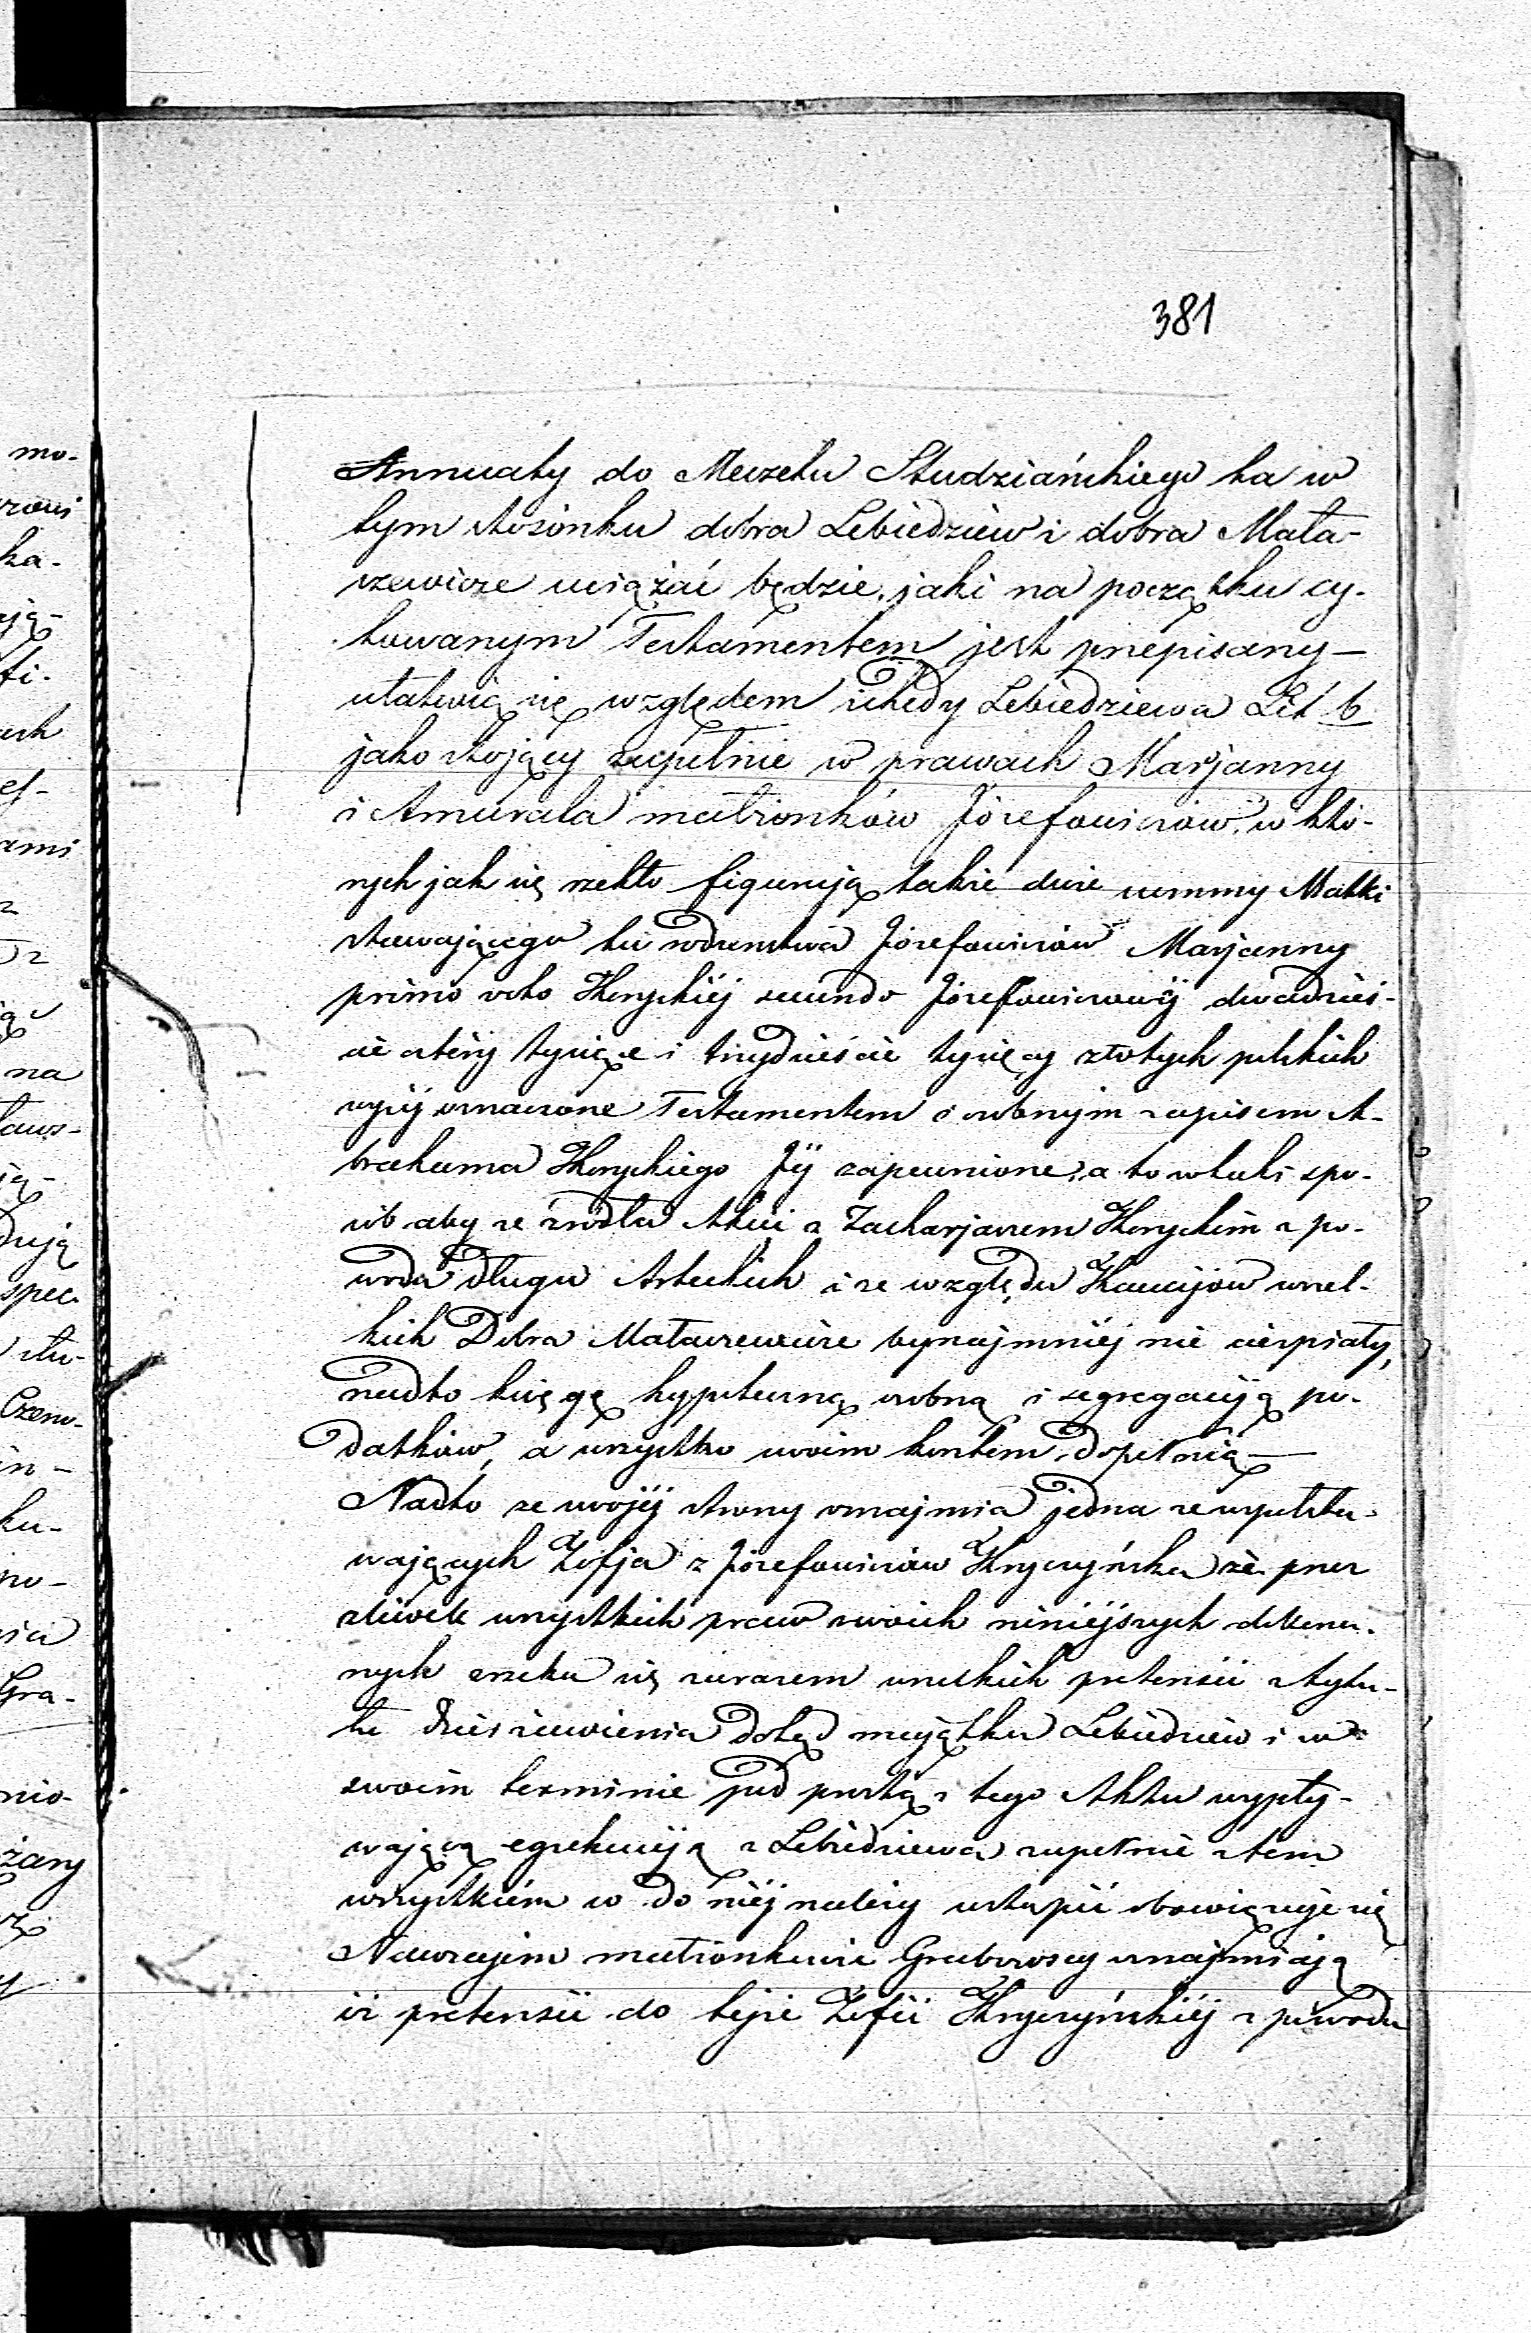 381
Annuaty do Meczetu Studziańskiego ta w
tym stosónku dobra Lebiedziew i dobra Mała-
szewicze uciążać będzie, jaki na początku cy-
towanym Testamentem jest przepisany —
ułatwią się względem schedy Lebiedziewa Lit b
jako stojący zupełnie w prawach Marjanny
i Amurata małżonków Józefowiczów, w któ-
rych jak się rzekło figurują także dwie summy Matki
stawającego tu rodzeństwa Józefowiczów Marjanny
primo voto Koryckiéj secundo Józefowiczowéj dwadzieś-
cie cztéry tysiące i trzydzieście tysięcy złotych polskich
wyżéj oznaczone Testamentem i osobnym zapisem A-
brahama Koryckiego Jéj zapewnione, a to w taki spo-
sób aby ze źródła Akcji z Zacharjaszem Koryckim z po-
wodu długu Azteckich i ze względu Kaucijów wszel-
kich Dobra Małaszewicze bynajmniéj nie cierpiały,
nadto księgę hypoteczną osobną i segregacyją po-
datków, a wszystko swoim kosztem, dopełnią —
Nadto ze swojéj strony oznajmia jedna ze współsta-
wających Zofja z Józefowiczów Kryczyńska że przez
zlewek wszystkich praw swoich niniéjszych dokona-
nych zrzeka się zarazem wszelkich pretensii z tytu-
łu dzierżawienia dotąd majątku Lebiedziew i w
swoim terminie pod prostą z tego Aktu wypły-
wającą egzekucyją z Lebiedziewa zupełnie z tem
wszystkiém co do niéj należy ustąpić obowięzuje się
Nawzajem małżonkowie Grabowscy oznajmiają
iż pretensii do tejże Zofii Kryczyńskiéj z powodu